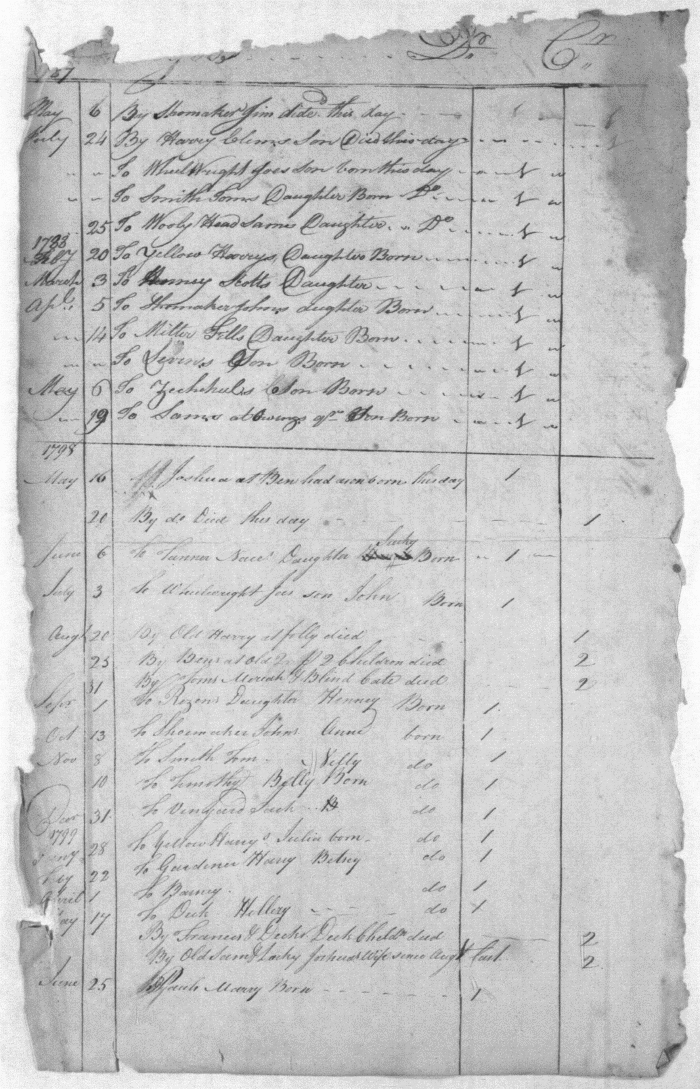 Dr Cr
May 6 By Shomaker Jim dide this day 1
July 24 By Harry Clems Son Died this day 1
" " To Wheel Wright Joes Son born this day 1
" " To Smith Toms Daughter Born Do 1
25 To Wooly Head Sams Daughter Do 1
1798
Feby 20 To Yellow Harrys Daughter Born 1
March 3 To Henney Scotts Daughter 1
Apl 5 To Shomaker Johns dughter Born 1
" 14 To Miller Daughter Born 1
" " To Levins Son Born 1
May 6 To Son Born 1
" 19 To Sams at Owings qr Son Born 1
1798
May 16 Joshua at Ben had a son born this day 1
20 By do Died this day 1
June 6 To Tanner Daughter Sucky Born 1
July 3 To Wheelwright Joes son John Born 1
Augt 20 By Old Harry at folly died 1
25 By Bens at Old 2 Children died 2
31 By Toms Moriah & Blind Cate died 2
Sepr 1 To Rezons Daughter Henney Born 1
Oct 13 To Shoemaker Johns Anne born 1
Nov 8 To Smith Tom do 1
10 To Timothy Betty Born do 1
Decr 31 To Vineyard Jack do 1
1799
28 To Yellow Harrys Julia born do 1
22 To Gardener Harry Betsey do 1
April 1 To Barney do 1
May 17 To Dick Hillery do 1
By Frances & Dicks Dick Childn died 2
By Old Sam & Lucky Joshuas Wife since Augt Last 2
June 25 Marry Born 1